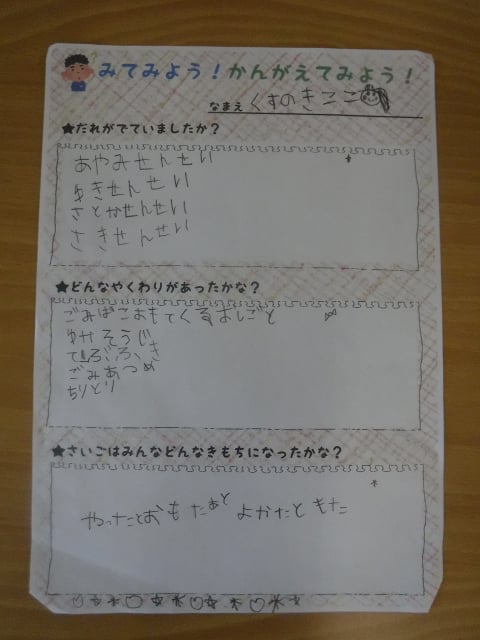 みてみよう！かんがえてみよう！
なまえ くすのきここ
★だれがでていましたか？
あやみせんせい
ゆきせんせい
さとかせんせい
さきせんせい
★どんなやくわりがあったかな？
ごみばこおもてくるおしごと
ゆかそうじ
ごみあつめ
ちりとり
★さいごはみんなどんなきもちになったかな？
やったとおもたあと よかたと もた